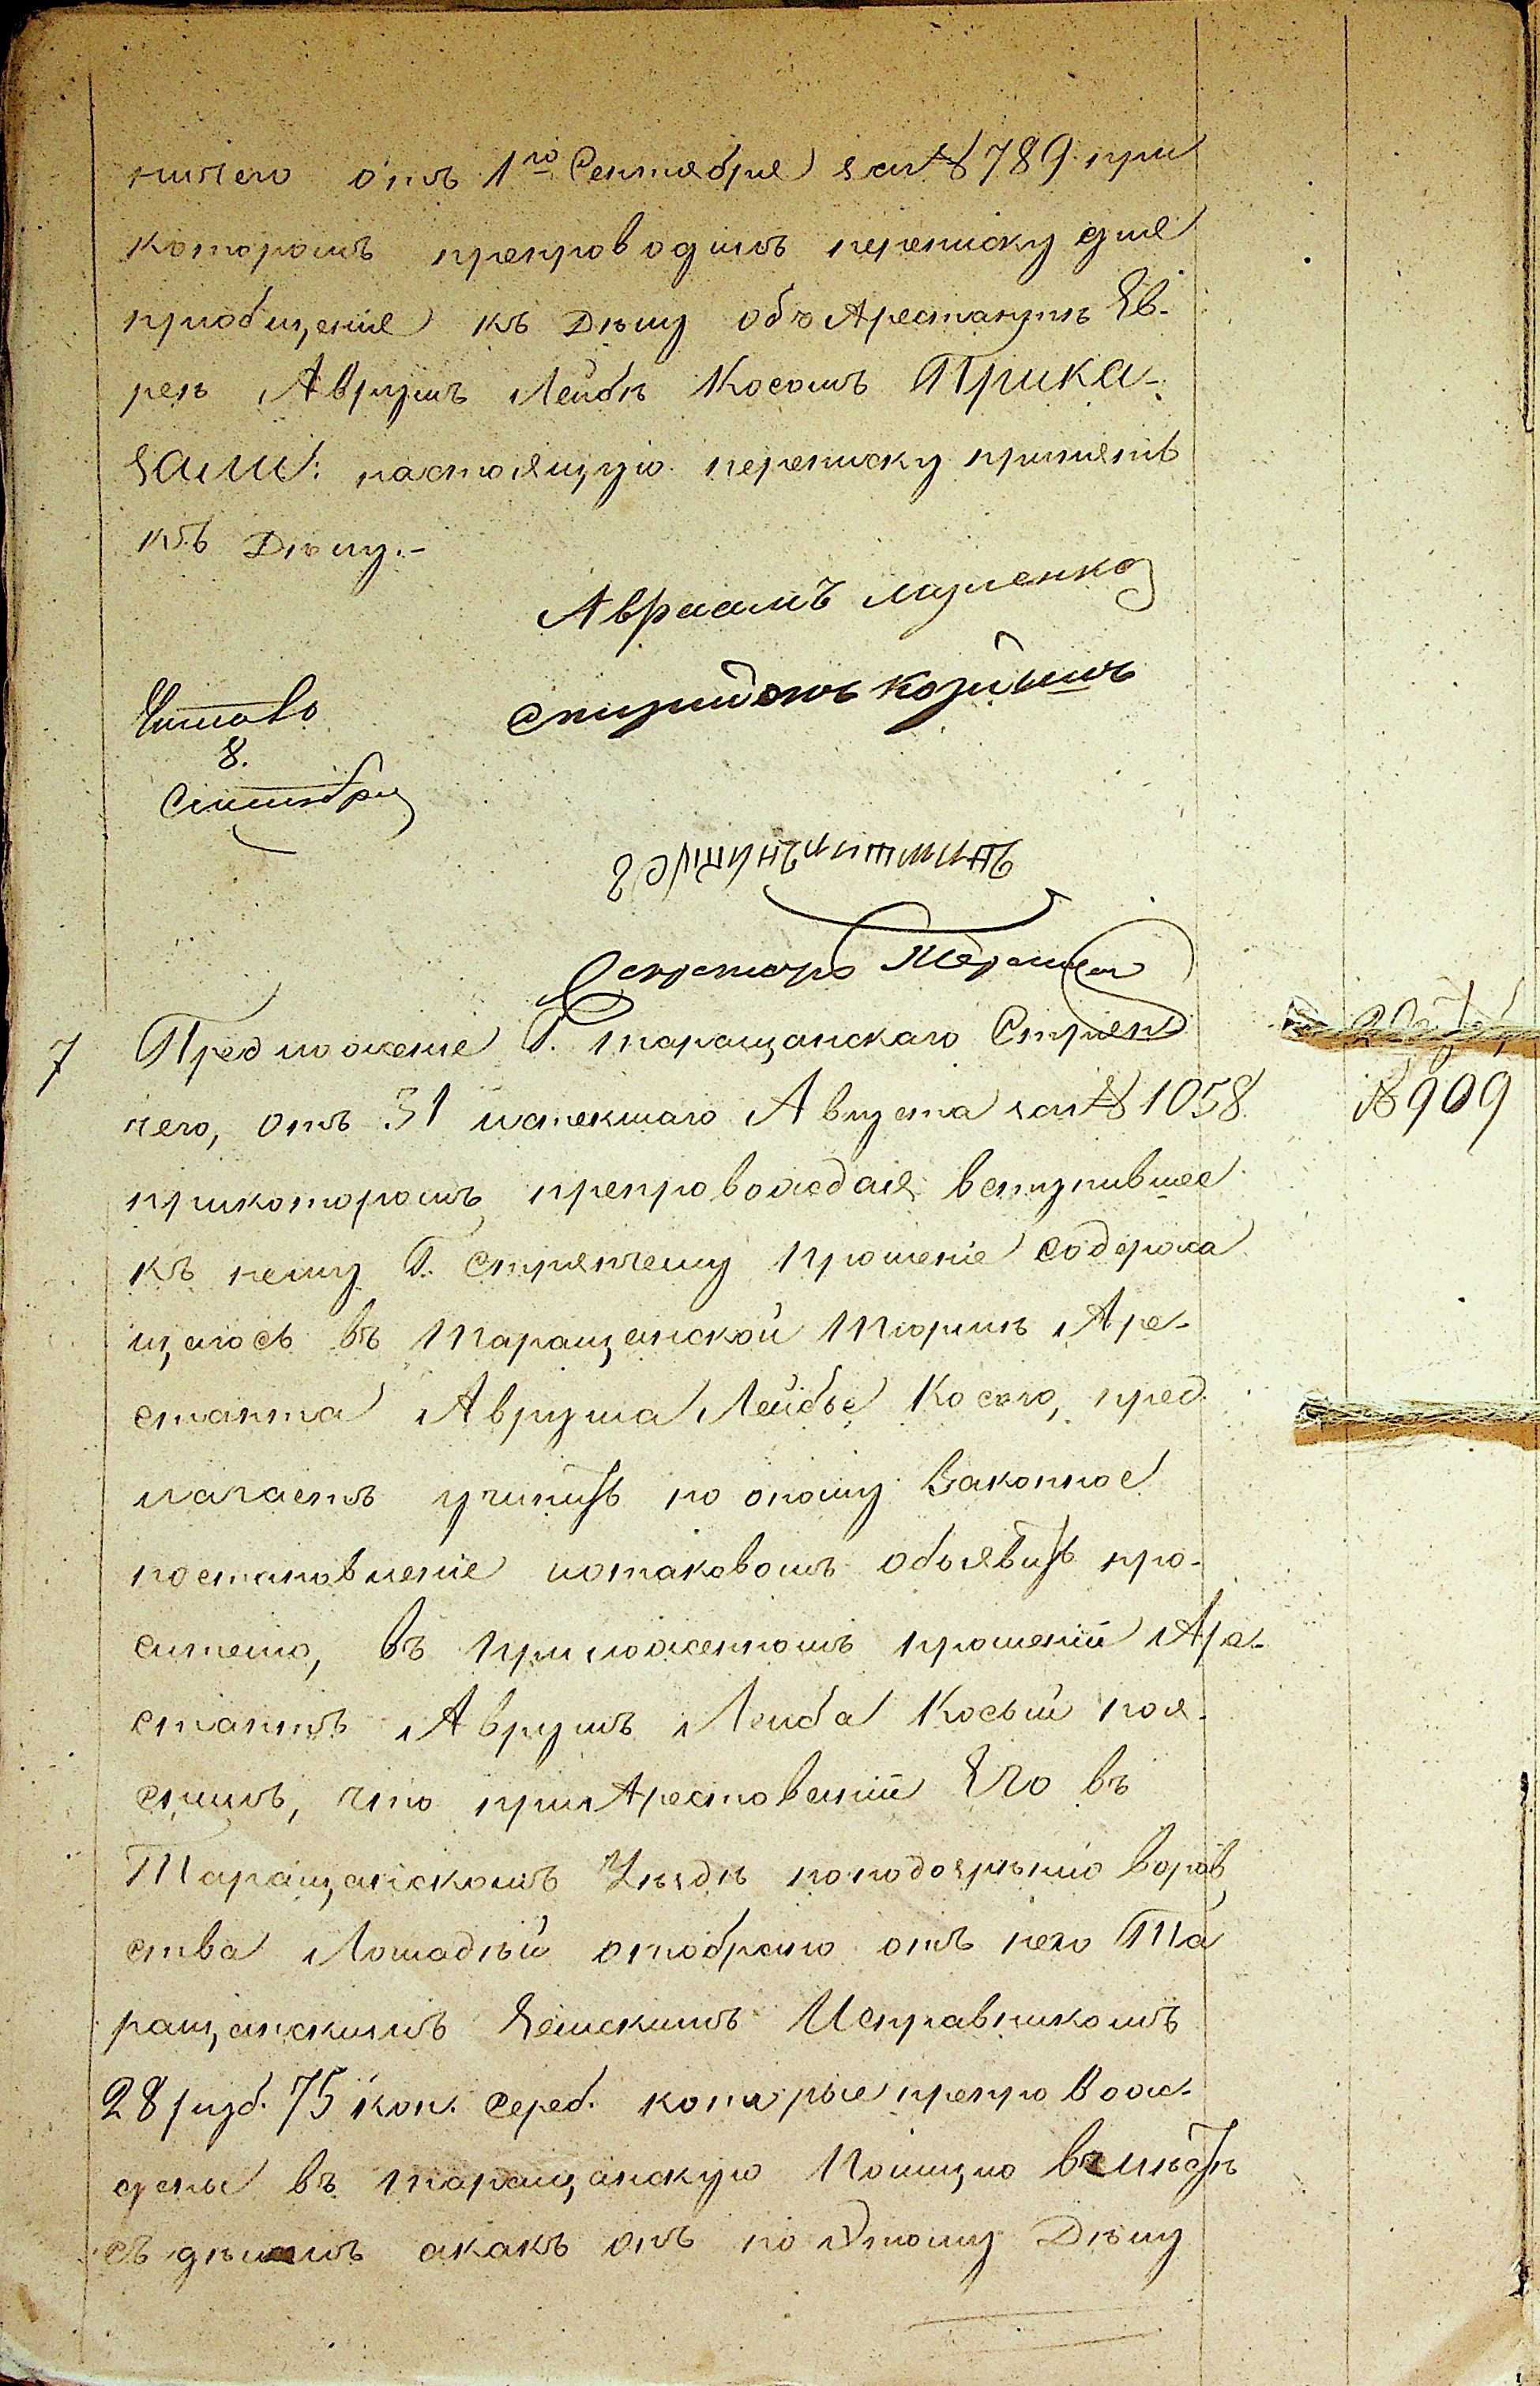 пичего отъ 1го Сентября за № 789 при
которомъ препроводилъ переписку для
приобщенія къ Дѣлу объ Арестантѣ Ев-
реѣ Аврумъ Лейбѣ Косомъ Прика-
зали: настоящую переписку принять
къ Дѣлу.-
Авраамъ
Спиридонъ
Читалъ
8.
Сентября
Секретарь
7 Предложеніе Г. таращанскаго Стряп
чего, отъ 31 истекшаго Августа за № 1058
№ 909
прикоторомъ препровождая вступившее
къ нему Г. Стряпчему прошеніе содержа
щагось въ Таращанской Тюрьмѣ Аре-
станта Аврума Лейбы Косого, пред
лагаетъ учинить по оному Законное
постановленіе ипотаковомъ объявить про-
сителю, въ приложенномъ прошеніи Аре-
стантъ Аврумъ Лейба Косый поя-
снилъ, что при Арестованіи Его въ
Таращанскомъ Уѣздѣ поподозрѣнію Воров
ства Лошадѣй отобрано отъ него Та
ращанскимъ Земскимъ Исправникомъ
28 руб. 75 коп. сереб. которые препровож-
дены въ таращанскую Полицію вмѣстѣ
съ дѣломъ акакъ онъ по Этому Дѣлу